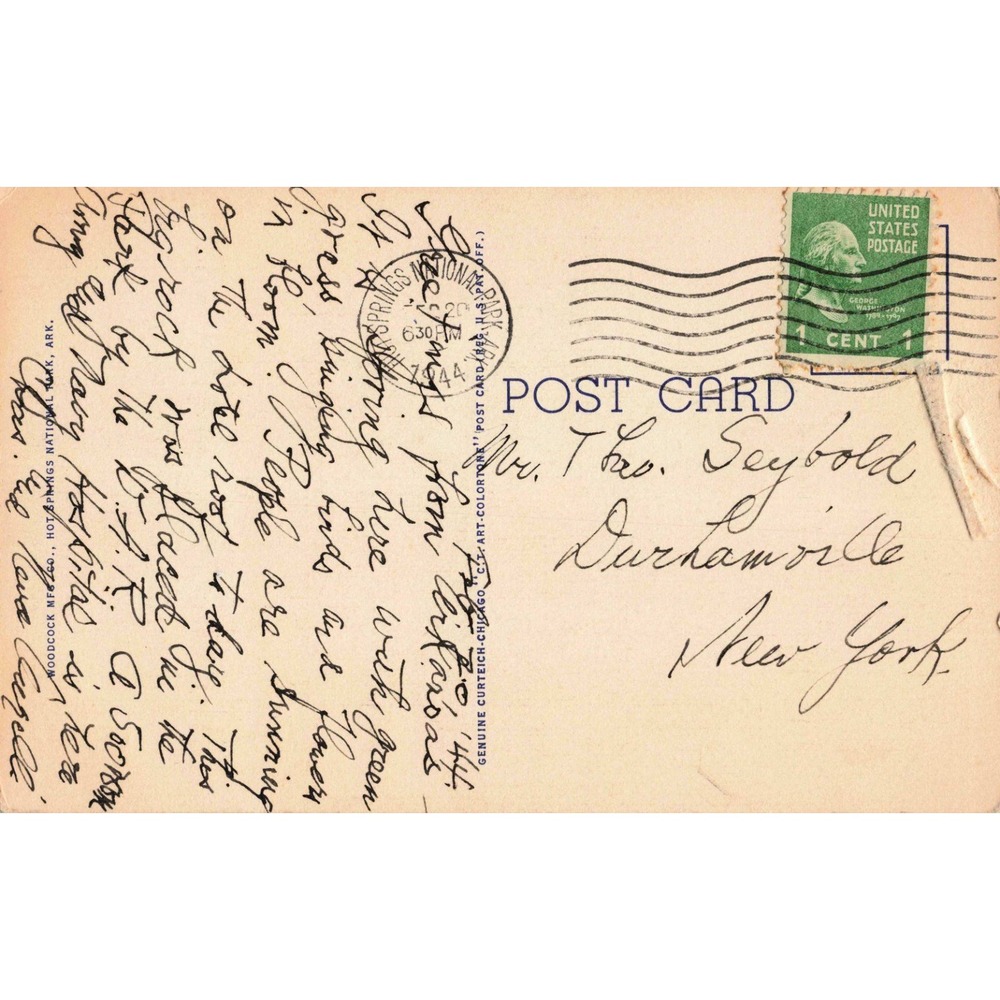 Feb 20, '44.
Greetings from Arkansas
It is Spring here with green
grass, singing birds and flowers
in bloom. People are sunning
on the hotel roof today. This
big rock was placed in the
Park by the D.A.R. A
Army and Navy Hospital is here
Chas. and
WOODCOCK MFG. CO., HOT SPRINGS NATIONAL PARK, ARK.
GENUINE CURTEICH-CHICAGO "C.T. ART-COLORTONE" POST CARD (REG. U.S. PAT. OFF.)
HOT SPRINGS NATIONAL PARK, ARK.
FEB 20
6 30 PM
1944
UNITED
STATES
POSTAGE
GEORGE
WASHINGTON
1789-1797
1 CENT 1
POST CARD
Mr. Theo. Seybold
Durhamville
New York.